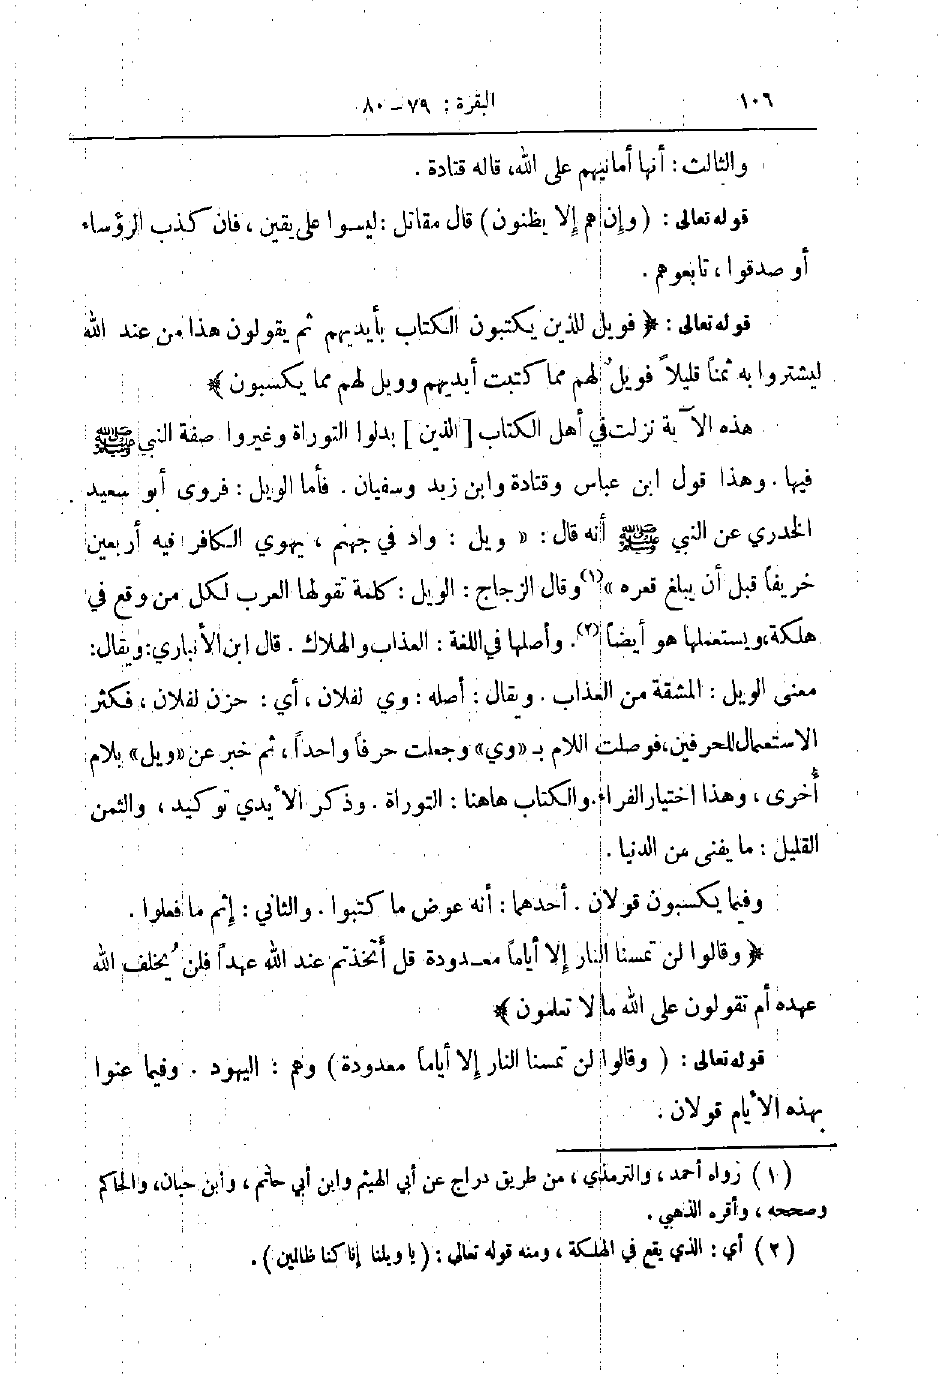 ١٠٦ البقرة : ٧٩ – ٨٠
والثالث : أنها أمانيهم على الله، قاله قتادة .
قوله تعالى : ( وإن هم إلا يظنون ) قال مقاتل : ليسوا على يقين ، فان كذب الرؤساء
أو صدقوا ، تابعوهم .
قوله تعالى : ﴿ فويل للذين يكتبون الكتاب بأيديهم ثم يقولون هذا من عند الله
ليشتروا به ثمناً قليلاً فويلٌ لهم مما كتبت أيديهم وويل لهم مما يكسبون ﴾
هذه الآية نزلت في أهل الكتاب [ الذين ] بدلوا التوراة وغيروا صفة النبي ﷺ
فيها . وهذا قول ابن عباس وقتادة وابن زيد وسفيان . فأما الويل : فروى أبو سعيد
الخدري عن النبي ﷺ أنه قال : « ويل : واد في جهنم ، يهوي الكافر فيه أربعين
خريفاً قبل أن يبلغ قعره »(١) وقال الزجاج : الويل : كلمة تقولها العرب لكل من وقع في
هلكة، ويستعملها هو أيضاً(٢). وأصلها في اللغة : العذاب والهلاك . قال ابن الأنباري: ويقال:
معنى الويل : المشقة من العذاب . ويقال : أصله : وي لفلان ، أي : حزن لفلان ، فكثر
الاستعمال للحرفين، فوصلت اللام بـ «وي» وجعلت حرفاً واحداً ، ثم خبر عن «ويل» بلام
أُخرى ، وهذا اختيار الفراء. والكتاب هاهنا : التوراة . وذكر الأيدي توكيد ، والثمن
القليل : ما يفنى من الدنيا .
وفيما يكسبون قولان . أحدهما : أنه عوض ما كتبوا . والثاني : إثم ما فعلوا .
﴿ وقالوا لن تمسنا النار إلا أياماً معدودة قل أتخذتم عند الله عهداً فلن يُخلف الله
عهده أم تقولون على الله ما لا تعلمون ﴾
قوله تعالى : ( وقالوا لن تمسنا النار إلا أياماً معدودة ) وهم : اليهود . وفيما عنوا
بهذه الأيام قولان .
( ١ ) رواه أحمد ، والترمذي ، من طريق دراج عن أبي الهيثم وابن أبي حاتم ، وابن حبان، والحاكم
وصححه ، وأقره الذهبي .
( ٢ ) أي : الذي يقع في الهلكة ، ومنه قوله تعالى : ( يا ويلنا إنا كنا ظالمين ) .